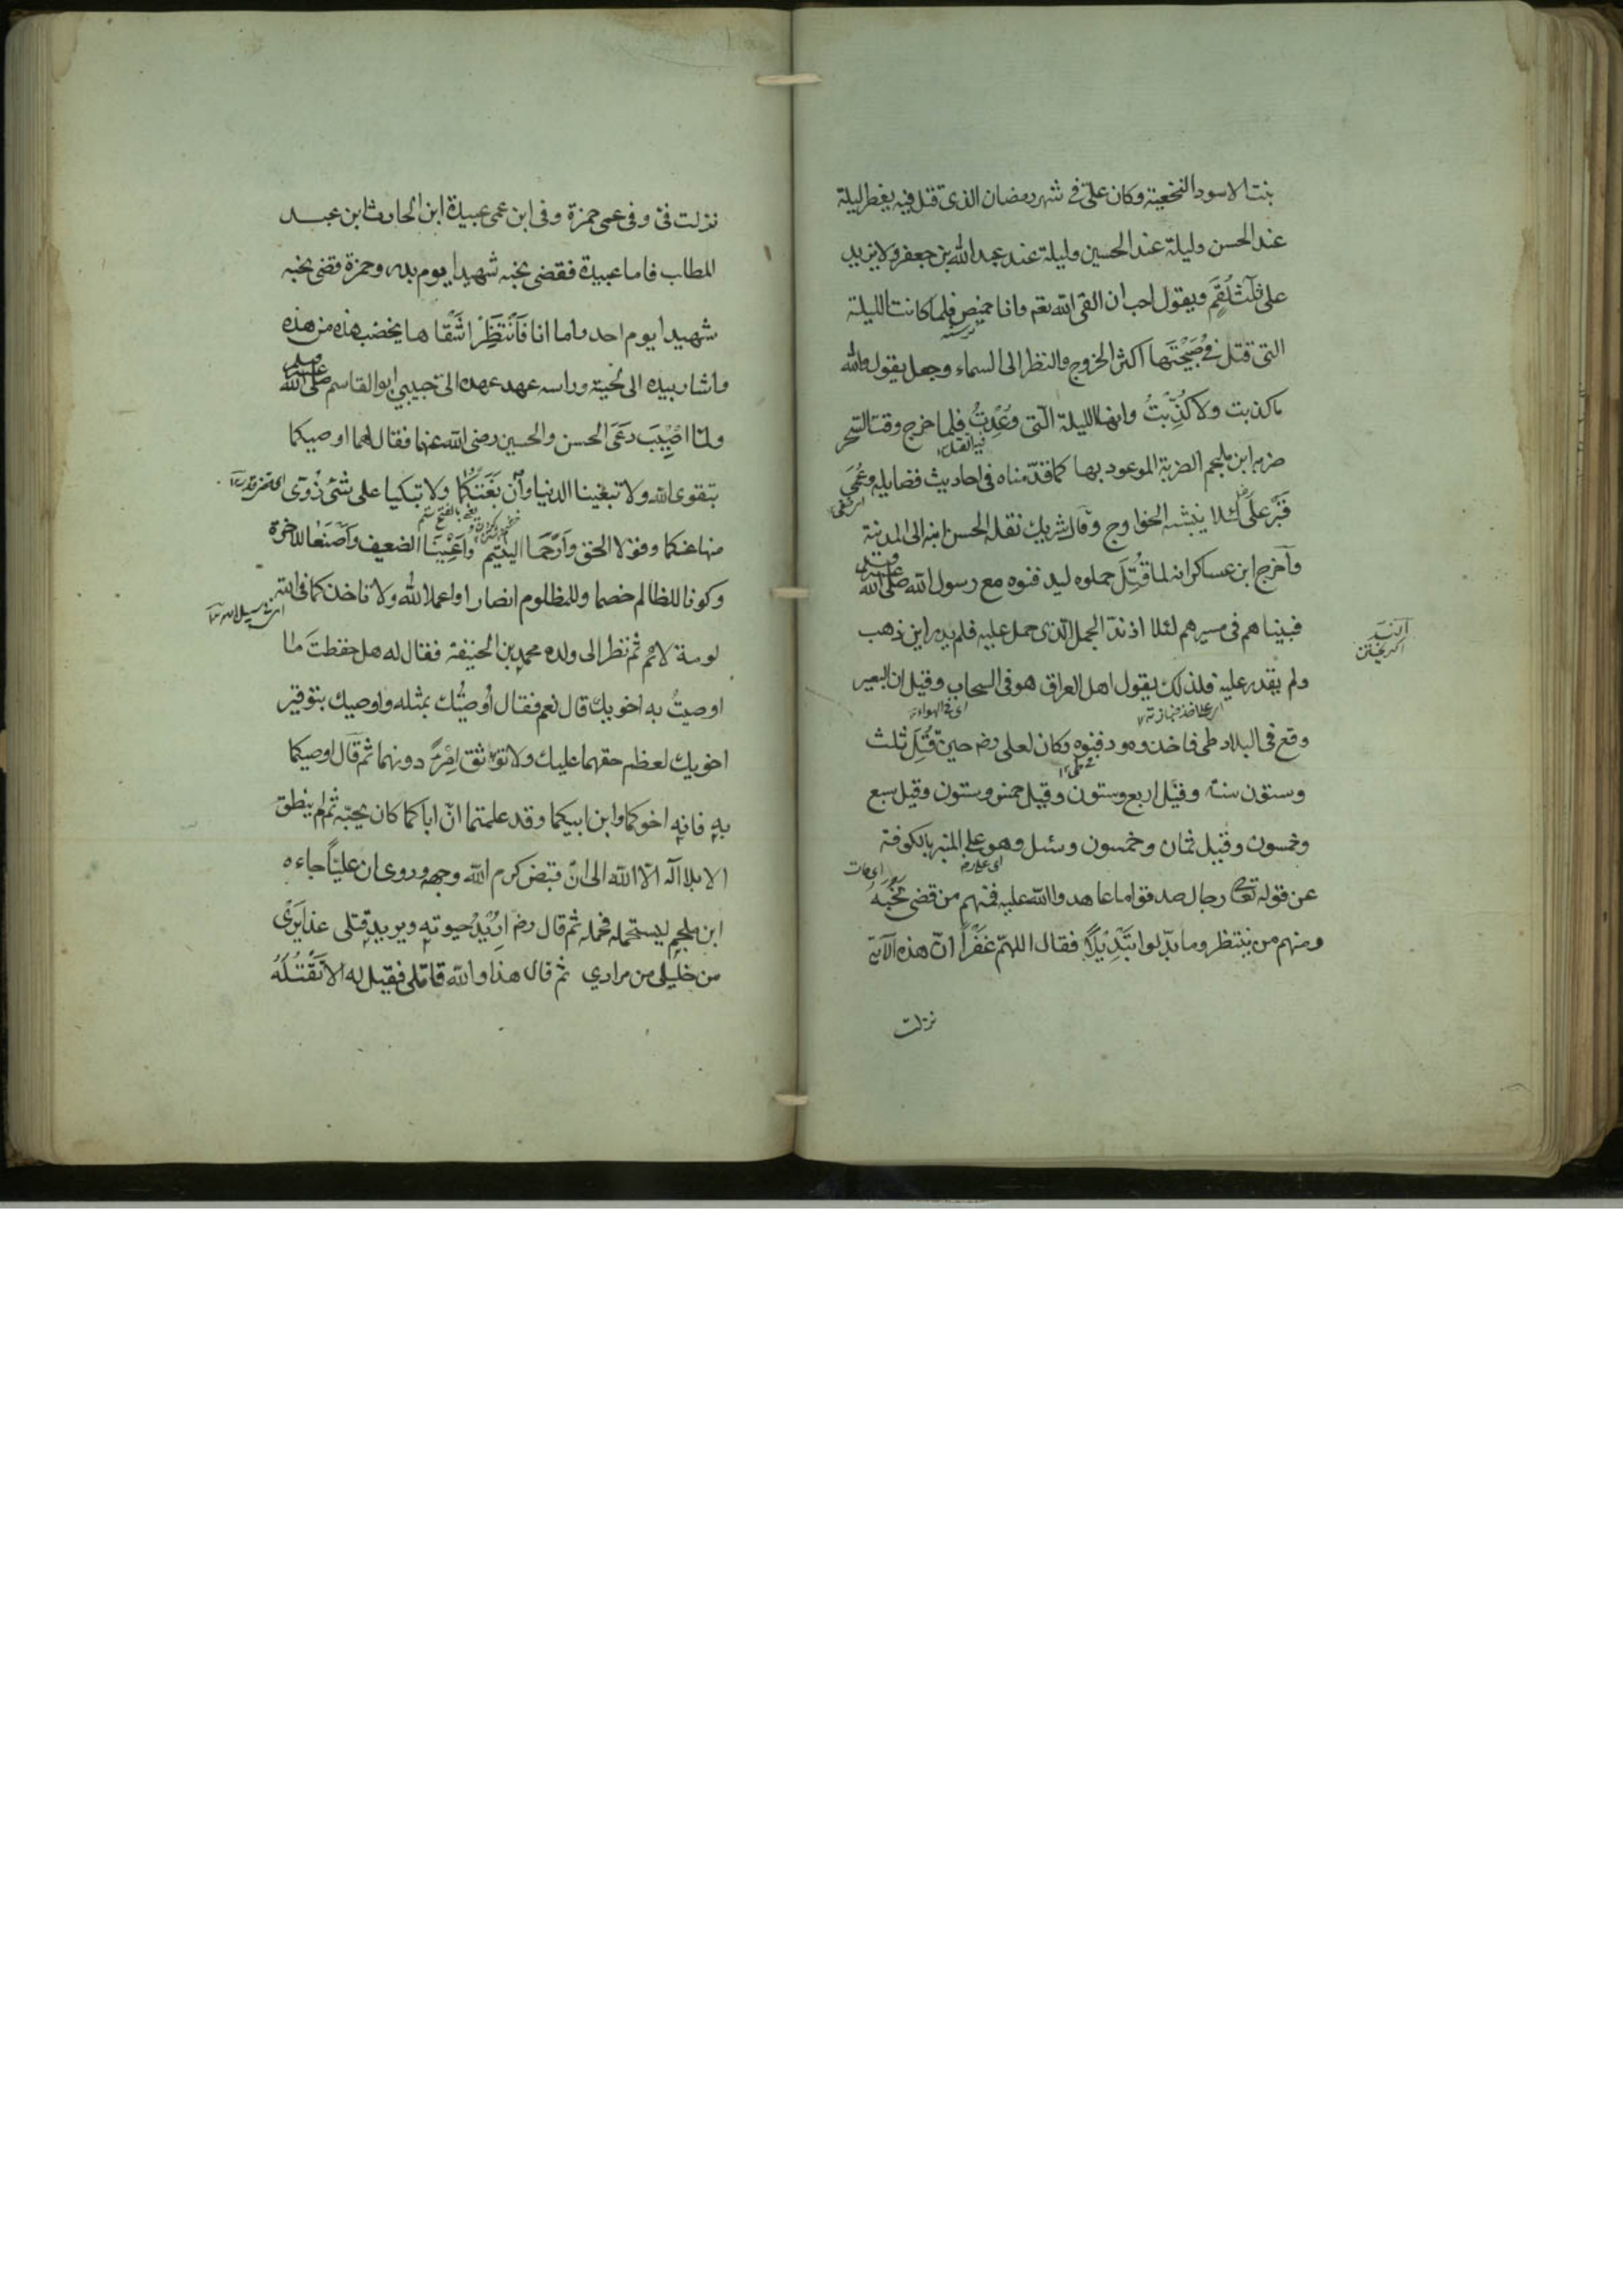 بنت الاسود النخعية وكان علىّ فى شهر رمضان الذى قتل فيه يفطر ليلة
عند الحسن وليلة عند الحسين وليلة عند عبد الله بن جعفر ولا يزيد
على ثلٰث لُقَمٍ ويقول احب ان القى الله تعم وانا خميص فلما كانت الليلة
التى قتل فى صُبَيْحَتِها اكثر الخروج والنظر الى السماء وجعل يقول والله
ما كذبت ولا كُذّبتُ وانها الليلة الّتى وُعِدتُ فلما خرج وقت السحر
ضربه ابن ملجم الضربة الموعود بها كما قدّمناه فى احاديث فضايله وعُمّىَ
قَبْرُ على لئلا ينبشه الخوارج وقال شريك نقله الحسن ابنه الى المدينة
وأخرج ابن عساكر انه لما قُتِلَ حملوه ليدفنوه مع رسول الله صلى الله عليه وسلم
فبينا هم فى مسيرهم لئلا اذ ندّ الجمل الّذى حمل عليه فلم يدر اين ذهب
ولم يقدر عليه فلذلك يقول اهل العراق هو فى السحاب وقيل ان البعير
اى فى الهواء
وقع فى البلاد طى فاخذوه ودفنوه وكان لعلى رضه حين قُتِلَ ثلث
وستون سنة وقيل اربع وستون وقيل خمس وستون وقيل سبع
وخمسون وقيل ثمان وخمسون وسئل وهو على المنبر بالكوفة
اى مات
عن قوله تعالى رجال صدقوا ما عاهدوا الله عليه فمنهم من قضى نَحْبَهُ
ومنهم من ينتظر وما بدّلوا تَبْدِيْلًا فقال اللهمّ غَفْراً انّ هذه الآية
نزلت
نزلت فىّ وفى عمى حمزة وفى ابن عمى عبيدة ابن الحارث ابن عبد
المطلب فاما عبيدة فقضى نحبه شهيدا يوم بدر وحمزة قضى نحبه
شهيدا يوم احد واما انا فَاَنْتَظِرُ اَشْقاها يخضب هذه من هذه
واشار بيده الى لحيته وراسه عهد عهده الىّ حبيبي ابو القاسم صلى الله عليه وسلم
ولمّا اُصِيْبَ دَعَى الحسن والحسين رضى الله عنهما فقال لهما اوصيكما
بتقوى الله ولا تبغينا الدنيا وان بَغَتْكُمَا ولا تبكيا على شئ زُوِىَ
منها عنكما وقولا الحق وارْحَمَا اليتيم واَعِيْنَا الضعيف واصْنَعا للاخرة
وكونا للظالم خصما وللمظلوم انصارا واعملا لله ولا تاخذكما فى الله
لومة لائم ثم نظر الى ولده محمد بن الحنيفة فقال له هل حفظتَ ما
اوصيتُ به اخويك قال نعم فقال اُوصيك بمثله واوصيك بتوقير
اخويك لعظم حقهما عليك ولا توثق امْرًا دونهما ثم قال اوصيكما
به فانه اخوكما وابن ابيكما وقد علمتما انّ اباكما كان يحبّه ثم لم ينطق
الا بلا اله الّا الله الى ان قبض كرم الله وجهه وروى ان عليّاً جاءه
ابن ملجم يستحمله فحمله ثم قال رضه اريد حيوته ويريد قتلى عذيرى
من خليلى من مرادي ثم قال هذا والله قاتلى فقيل له الا تَقْتُلُهُ